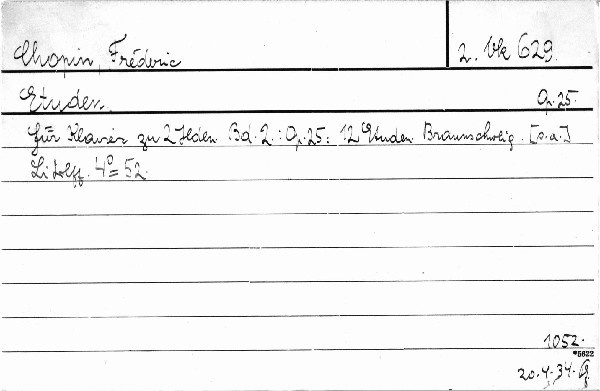 Chopin, Frédéric
2. Vk 629.
Etuden.
Op. 25.
für Klavier zu 2 Hden. Bd. 2.: Op. 25: 12 Etuden. Braunschweig. [s.a.]
Litolff. 4°= 52.
1052.
*5622
20.4.34.